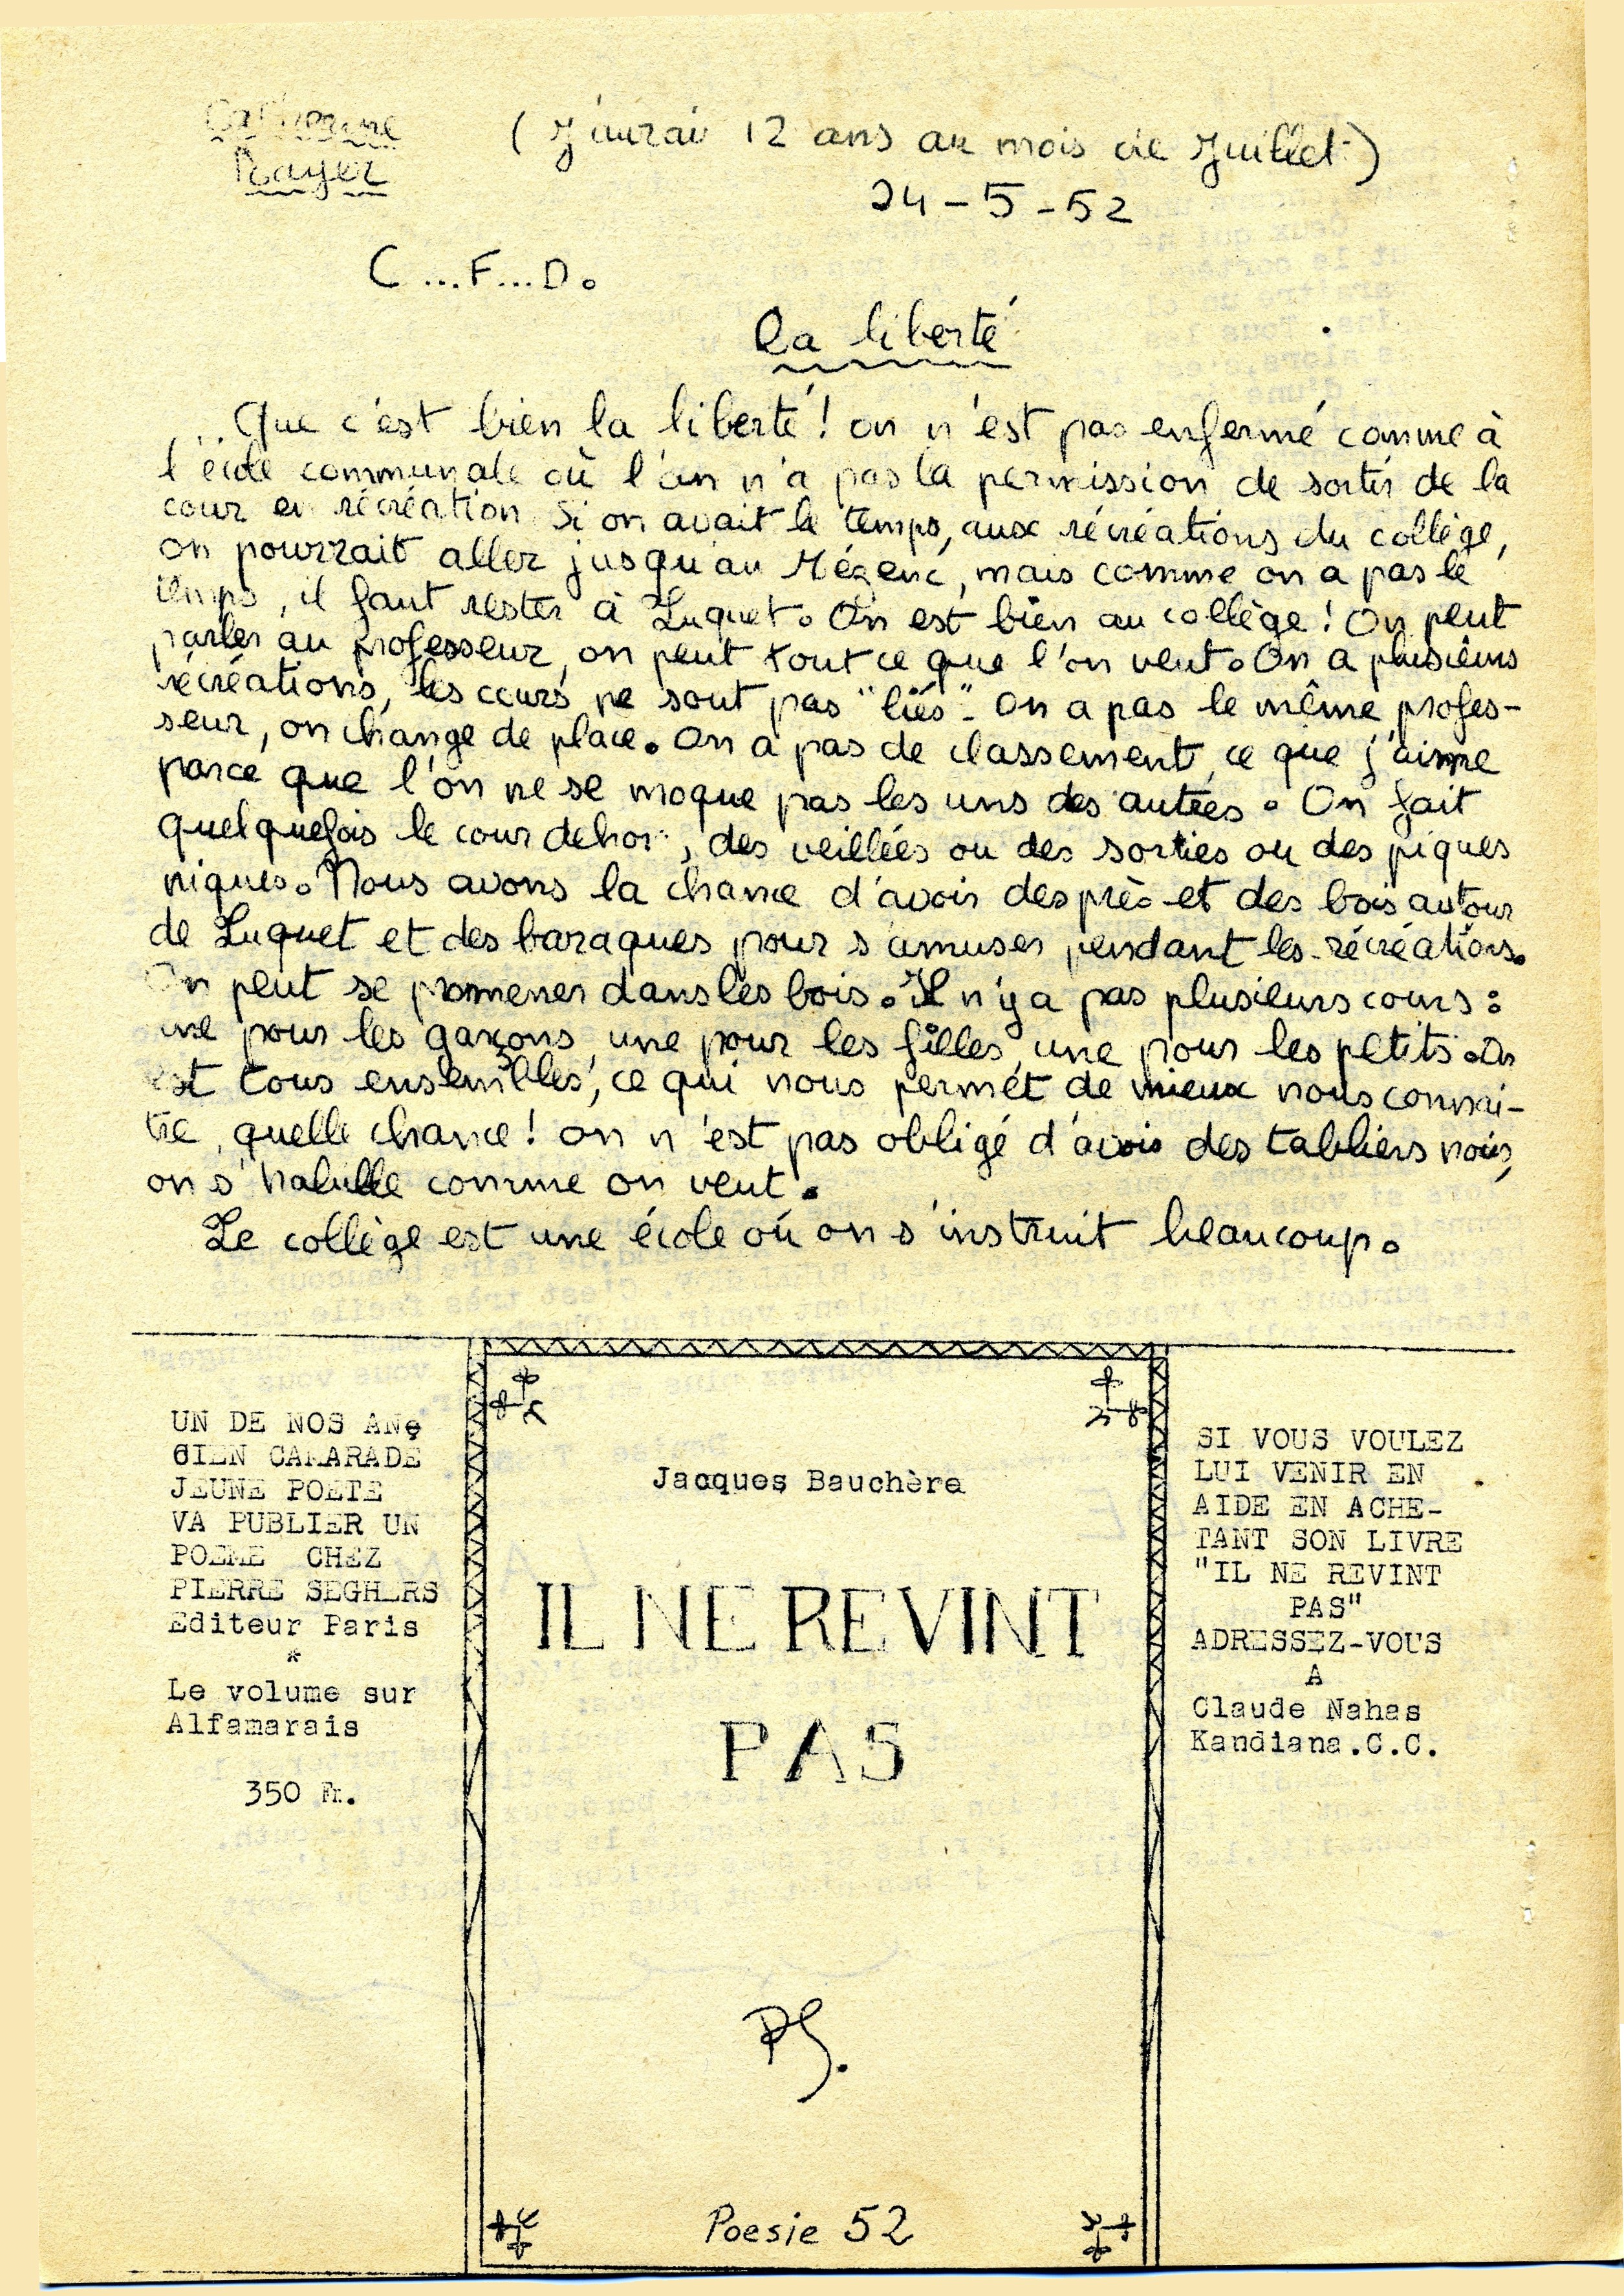 Catherine
Rayer
( J'aurai 12 ans au mois de Juillet )
24 - 5 - 52
C ... F... D.
La liberté
... Que c'est bien la liberté ! on n'est pas enfermé comme à
l'école communale où l'on n'a pas la permission de sortir de la
cour en récréation. Si on avait le temps, aux récréations du collège,
on pourrait aller jusqu'au Mézenc, mais comme on a pas le
temps, il faut rester à Luquet. On est bien au collège ! On peut
parler au professeur, on peut tout ce que l'on veut. On a plusieurs
récréations, les cours ne sont pas "liés". On a pas le même profes-
seur, on change de place. On a pas de classement, ce que j'aime
parce que l'on ne se moque pas les uns des autres. On fait
quelquefois le cour dehors, des veillées ou des sorties ou des piques
niques. Nous avons la chance d'avoir des près et des bois autour
de Luquet et des baraques pour s'amuser pendant les récréations.
On peut se promener dans les bois. Il n'y a pas plusieurs cours :
une pour les garçons, une pour les filles, une pour les petits. On
est tous ensembles, ce qui nous permét de mieux nous connai-
tre, quelle chance ! on n'est pas obligé d'avoir des tabliers noirs,
on s'habille comme on veut.
Le collège est une école où on s'instruit beaucoup.
UN DE NOS ANç
CIEN CAMARADE
JEUNE POETE
VA PUBLIER UN
POEME CHEZ
PIERRE SEGHERS
Editeur Paris
*
Le volume sur
Alfamarais
350 Fr.
Jacques Bauchère
IL NE REVINT
PAS
PS.
Poesie 52
SI VOUS VOULEZ
LUI VENIR EN
AIDE EN ACHE-
TANT SON LIVRE
"IL NE REVINT
PAS"
ADRESSEZ-VOUS
A
Claude Nahas
Kandiana.C.C.